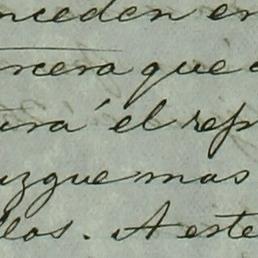 nceden en
rcera que
ará el rep
uzgue mas
llos. A este